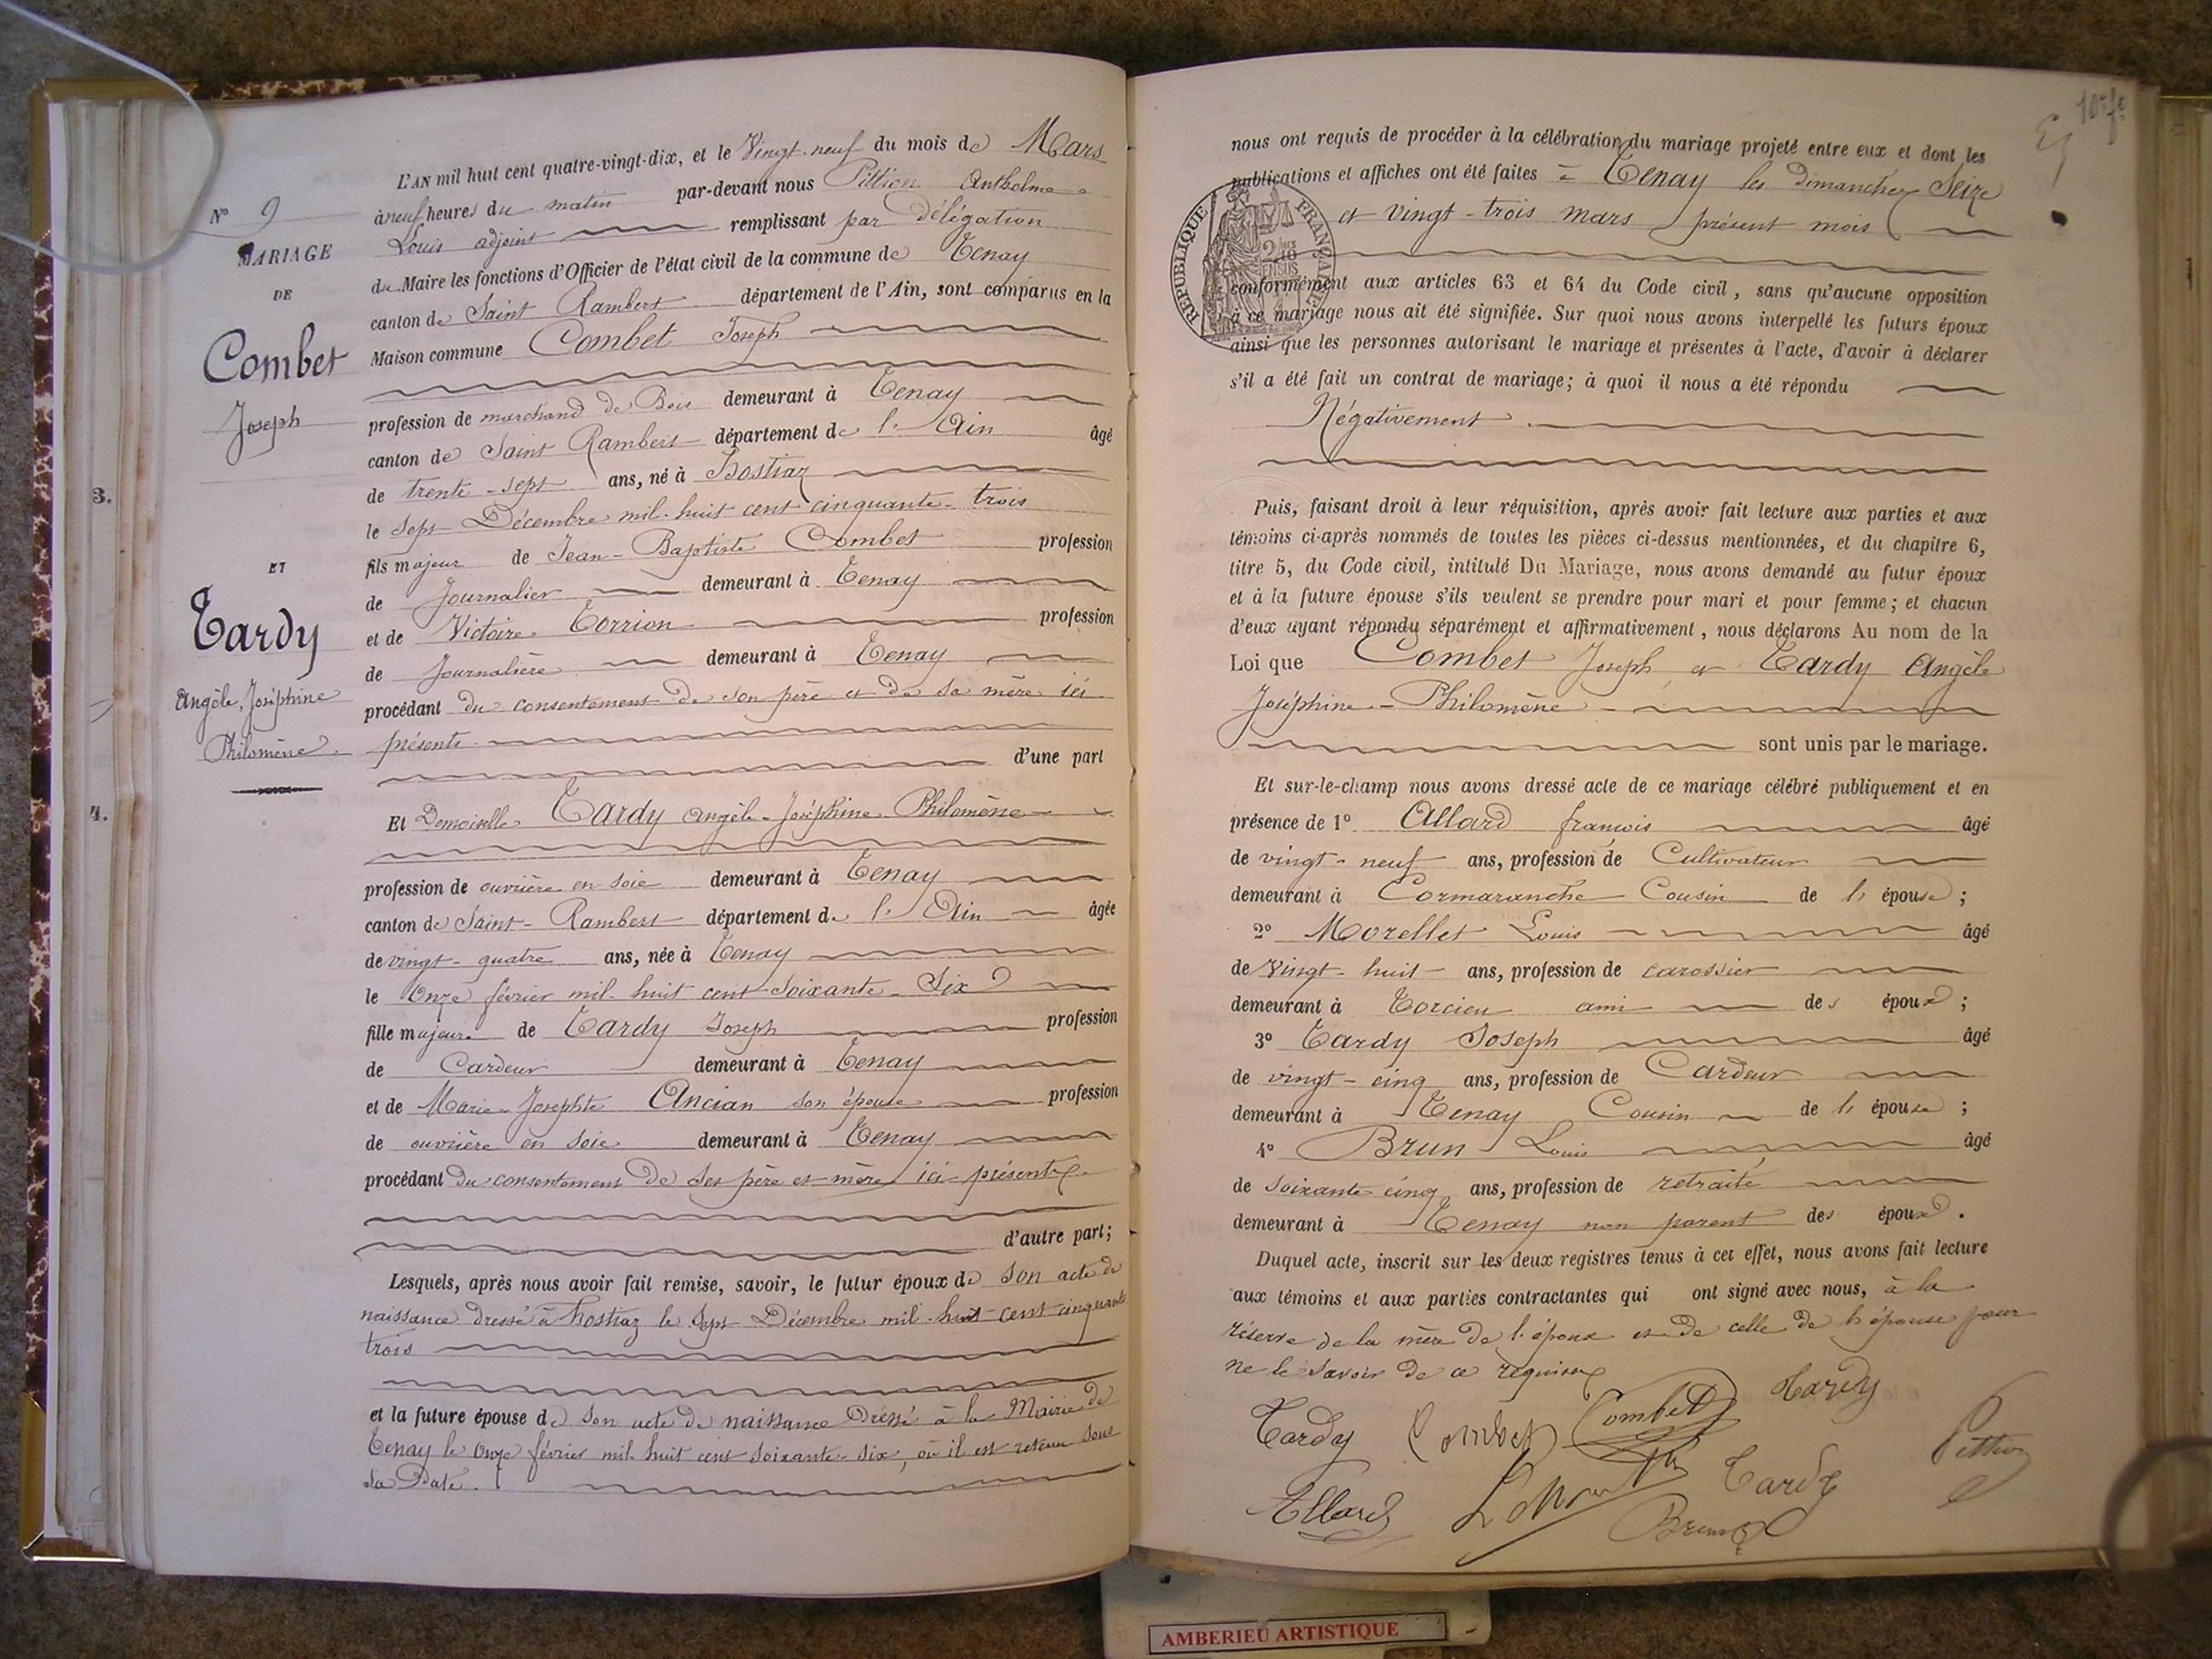 L'AN mil huit cent quatre-vingt-dix, et le Vingt-neuf du mois de Mars
à neuf heures du matin par-devant nous Pittion Anthelme
Louis adjoint remplissant par délégation
du Maire les fonctions d'Officier de l'état civil de la commune de Tenay
canton de Saint Rambert département de l'Ain, sont comparus en la
Maison commune Combet Joseph
profession de marchand de Bois demeurant à Tenay
canton de Saint Rambert département de l'Ain âgé
de trente-sept ans, né à Hostiaz
le sept Décembre mil-huit cent cinquante-trois
fils majeur de Jean-Baptiste Combet profession
de Journalier demeurant à Tenay
et de Victoire Torrion profession
de Journalière demeurant à Tenay
procédant du consentement de son père et de sa mère ici
présents
d'une part
Et Demoiselle Tardy Angèle-Joséphine Philomène
profession de ouvrière en soie demeurant à Tenay
canton de Saint-Rambert département de l'Ain âgée
de vingt-quatre ans, née à Tenay
le onze février mil-huit cent soixante-Six
fille majeure de Tardy Joseph profession
de Cardeur demeurant à Tenay
et de Marie-Josephte Ancian son épouse profession
de ouvrière en soie demeurant à Tenay
procédant du consentement de ses père et mère ici présents
d'autre part;
Lesquels, après nous avoir fait remise, savoir, le futur époux de son acte de
naissance dressé à hostiaz le sept Décembre mil-huit-cent cinquante
trois
et la future épouse de son acte de naissance Dressé à la Mairie de
Tenay le onze février mil huit cent soixante-six, où il est retenu sous
sa Date.
N° 9
MARIAGE
DE
Combet
Joseph
ET
Tardy
Angèle, Joséphine
Philomène
3.
4.
nous ont requis de procéder à la célébration du mariage projeté entre eux et dont les
publications et affiches ont été faites à Tenay les Dimanches Seize
et vingt-trois mars présent mois
conformément aux articles 63 et 64 du Code civil, sans qu'aucune opposition
à ce mariage nous ait été signifiée. Sur quoi nous avons interpellé les futurs époux
ainsi que les personnes autorisant le mariage et présentes à l'acte, d'avoir à déclarer
s'il a été fait un contrat de mariage; à quoi il nous a été répondu
Négativement.
Puis, faisant droit à leur réquisition, après avoir fait lecture aux parties et aux
témoins ci-après nommés de toutes les pièces ci-dessus mentionnées, et du chapitre 6,
titre 5, du Code civil, intitulé Du Mariage, nous avons demandé au futur époux
et à la future épouse s'ils veulent se prendre pour mari et pour femme; et chacun
d'eux ayant répondu séparément et affirmativement, nous déclarons Au nom de la
Loi que Combet Joseph et Tardy Angèle
Joséphine-Philomène
sont unis par le mariage.
Et sur-le-champ nous avons dressé acte de ce mariage célébré publiquement et en
présence de 1° Allard françois âgé
de vingt-neuf ans, profession de Cultivateur
demeurant à Cormaranche Cousin de l' épouse;
2° Morellet Louis âgé
de Vingt-huit ans, profession de carossier
demeurant à Torcieu ami des époux;
3° Tardy Joseph âgé
de vingt-cinq ans, profession de Cardeur
demeurant à Tenay Cousin de l' épouse;
4° Brun Louis âgé
de soixante cinq ans, profession de retraité
demeurant à Tenay non parent des époux.
Duquel acte, inscrit sur les deux registres tenus à cet effet, nous avons fait lecture
aux témoins et aux parties contractantes qui ont signé avec nous, à la
réserve de la mère de l'époux et de celle de l'épouse pour
ne le savoir de ce requises
Tardy Combet Combet Tardy
Pittion
Allard Tardy
Brun
RÉPUBLIQUE FRANÇAISE
AMBERIEU ARTISTIQUE